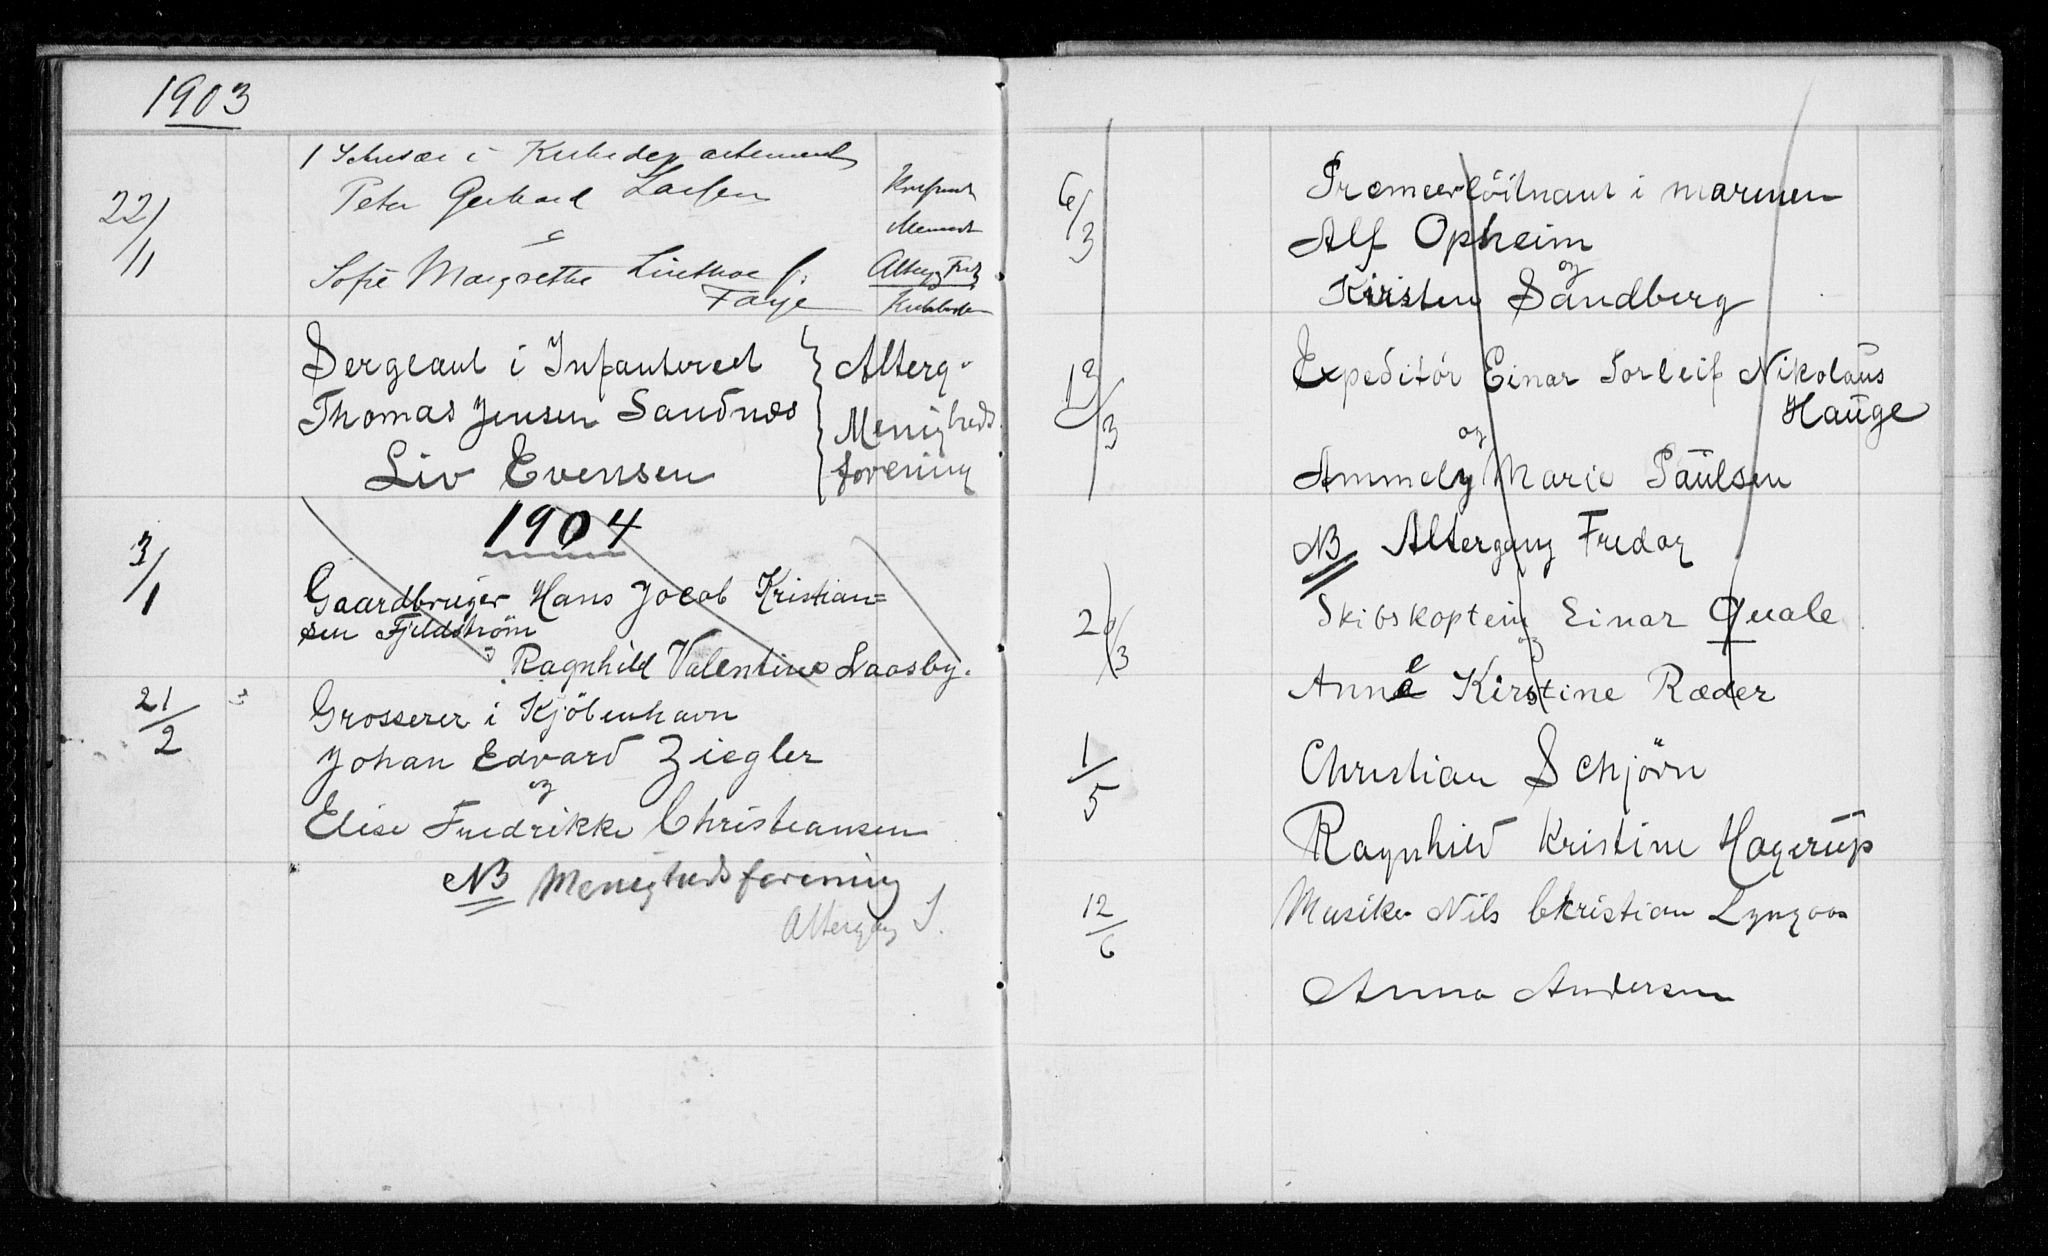 1903
22/11
Peter Gerhard Larsen
Sofie Margrethe Linthoe f.
Faye
Sergeant i Infanteriet
Thomas Jensen Sandnæs
Liv Evensen
Alterg.
Menigheds
forening
1904
3/1
Gaardbruger Hans Jacob Kristian=
sen Fjeldstrøm
Ragnhild Valentine Naasby.
21/2
Grosserer i Kjöbenhavn
Johan Edvard Ziegler
og
Elise Fredrikke Christiansen
NB Menighedsforening
Altergang
6/3
Premierlöitnant i marinen
Alf Opheim
og
Kirsten Sandberg
12/3
Expeditör Einar Torleif Nikolaus
Hauge
og
Ammely Marie Paulsen
NB Altergang Fredag
/3
Skibskaptein Einar Quale
og
Anne Kirstine Ræder
1/5
Christian Schjörn
Ragnhild Kristine Hagerup
12/6
Musiker Nils Christian Lyngaas
Anna Andersen